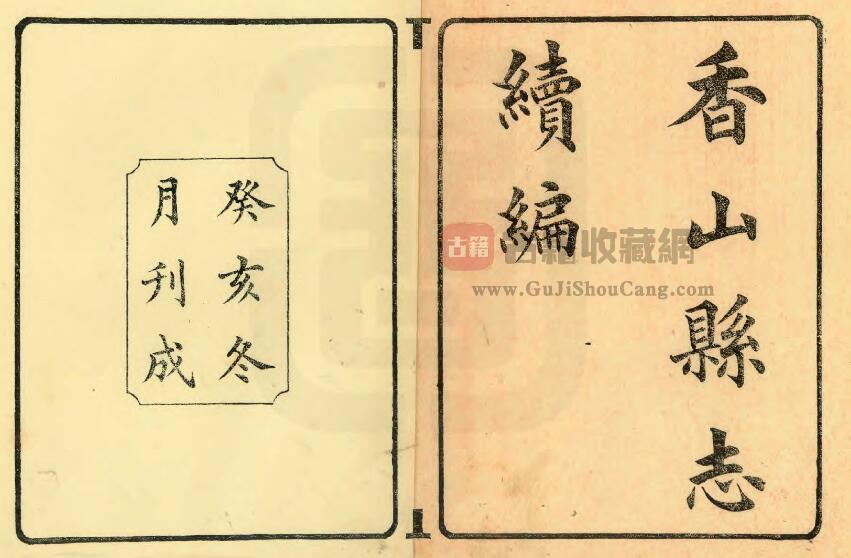 香山縣志
續編
癸亥冬
月刊成
古籍
古籍收藏網
www.GuJiShouCang.com